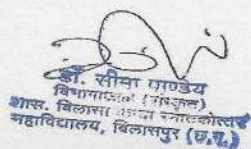 डॉ. सीमा पाण्डेय
विभागाध्यक्ष (संस्कृत)
शास. बिलासा कन्या स्नातकोत्तर
महाविद्यालय, बिलासपुर (छ.ग.)